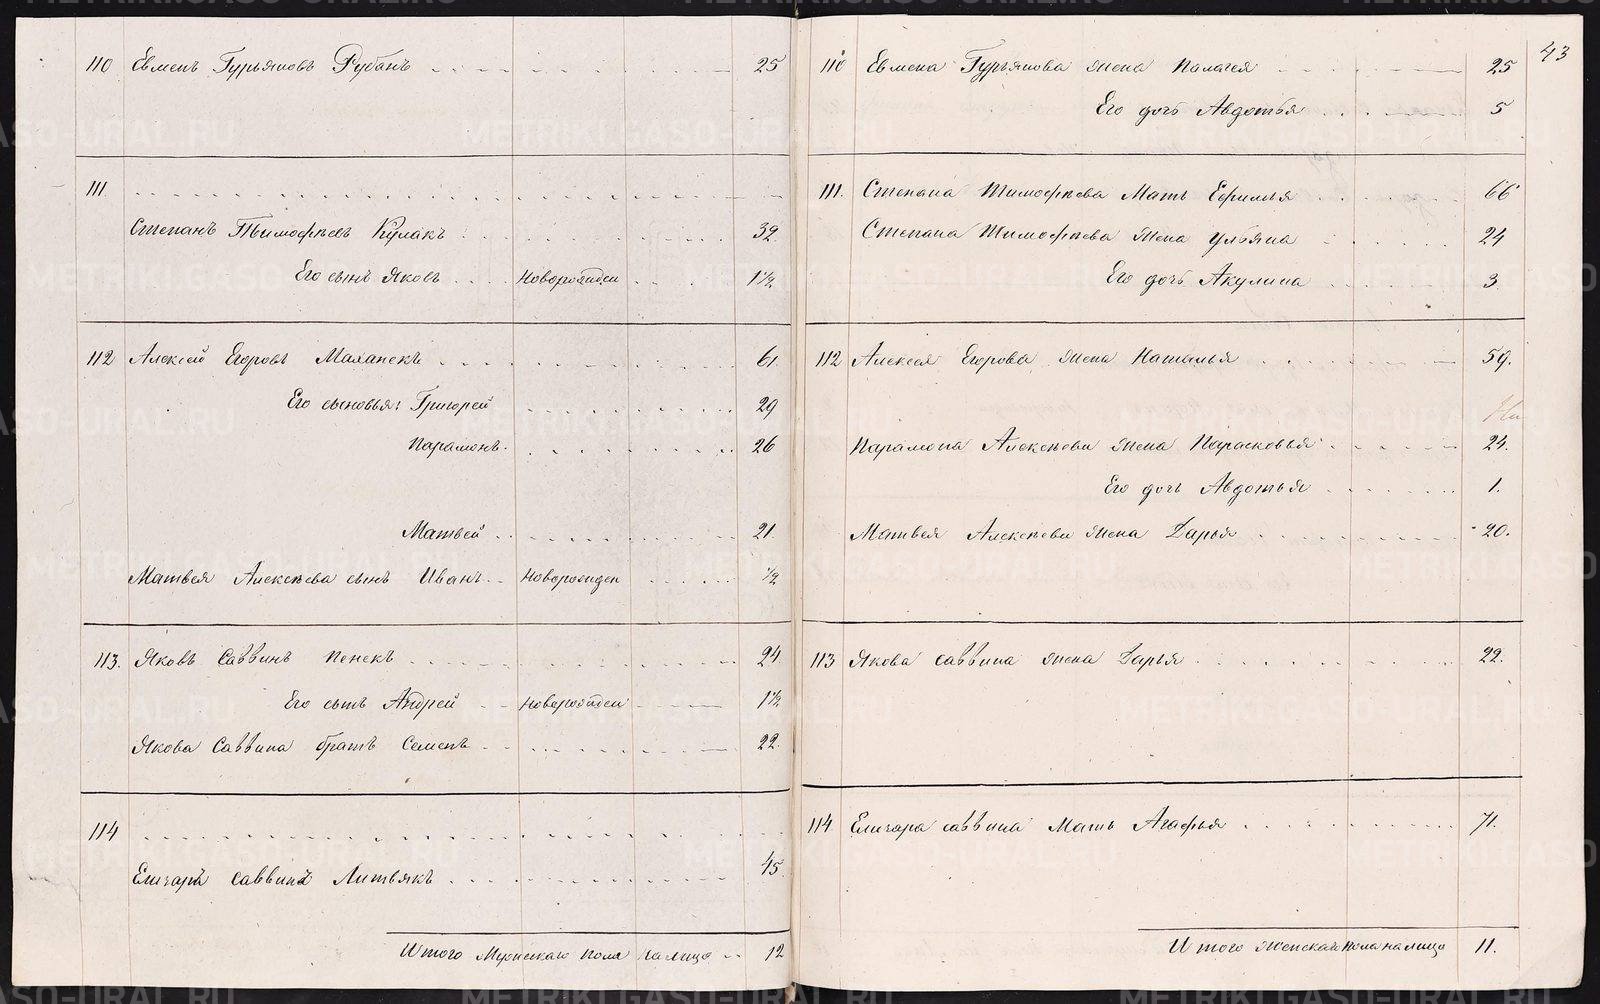 43
110 Евменъ Гурьяновъ Рубанъ 25
111
Степанъ Тимофѣевъ Кулакъ 39
Его сынъ Яковъ Новорожден 1 1/2
112 Алексей Егоровъ Маханекъ 61
Его сыновья: Григорей 29
Парамонъ. 26
Матвей 21
Матвея Алексѣева сынъ Иванъ Новорожден 1/2
113. Яковъ Саввинъ Пенекъ 24
Его сынъ Андрей Новорожден 1 1/2
Якова Саввина братъ Семенъ 22
114
Елизаръ Саввинъ Литвякъ 45
Итого Мужескаго пола на лицо 12
110 Евмена Гурьянова жена Палагея 25
Его дочь Авдотья 5
111. Степана Тимофѣева Мать Ефимья 66
Степана Тимофѣева жена Ульяна 24
Его дочь Акулина 3
112 Алексея Егорова жена Наталья 59.
Парамона Алексѣева жена Парасковья 24.
Его дочь Авдотья 1.
Матвея Алексѣева жена Дарья 20.
113 Якова Саввина жена Дарья 22.
114 Елизара Саввина Мать Агафья 71.
Итого Женскаго пола на лицо 11.
METRIKI.GASO-URAL.RU